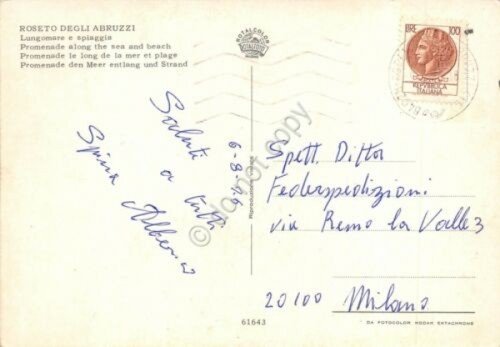 ROSETO DEGLI ABRUZZI
Lungomare e spiaggia
Promenade along the sea and beach
Promenade le long de la mer et plage
Promenade den Meer entlang und Strand
ROTALCOLOR
LIRE 100
REPVBBLICA
ITALIANA
Saluti
a tutti
Spina
6-8-
Spett. Ditta
Federspedizioni
via Remo la Valle 3
20100 Milano
61643
DA FOTOCOLOR KODAK EKTACHROME
Do not copy